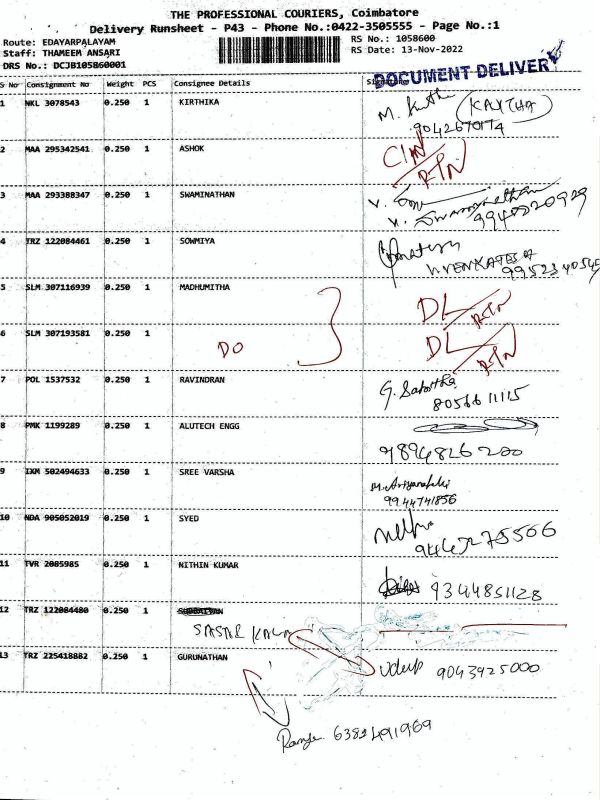 THE PROFESSIONAL COURIERS, Coimbatore
Delivery Runsheet - P43 - Phone No.:0422-3505555 - Page No.:1
Route: EDAYARPALAYAM
Staff: THAMEEM ANSARI
DRS No.: DCJB105860001
RS No.: 1058600
RS Date: 13-Nov-2022
DOCUMENT DELIVER
S No Consignment No Weight PCS Consignee Details Signature
1 NKL 3078543 0.250 1 KIRTHIKA M. (KAVITHA)
9042670174
2 MAA 295342541 0.250 1 ASHOK
RTN
3 MAA 293388347 0.250 1 SWAMINATHAN V.
V. Swaminathan
4 TRZ 122084461 0.250 1 SOWMIYA
5 SLM 307116939 0.250 1 MADHUMITHA DL RTN
6 SLM 307193581 0.250 1 DO DL RTN
7 POL 1537532 0.250 1 RAVINDRAN G. Sabitha
8056611115
8 PMK 1199289 0.250 1 ALUTECH ENGG
9894826200
9 IXM 502494633 0.250 1 SREE VARSHA
9944741856
10 NDA 905052019 0.250 1 SYED
11 TVR 2085985 0.250 1 NITHIN KUMAR 9344851128
12 TRZ 122084480 0.250 1
13 TRZ 225418882 0.250 1 GURUNATHAN
9043925000